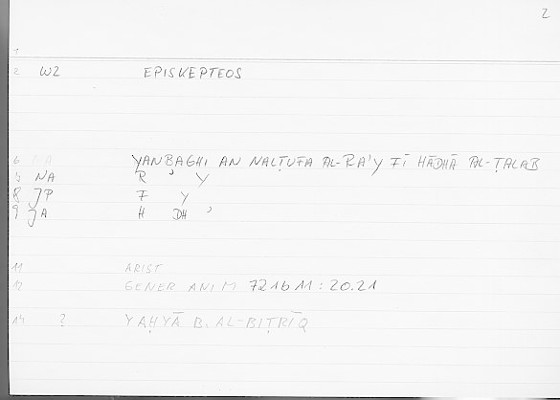 2
1
2 W2 EPISKEPTEOS
6 NA YANBAGHI AN NALṬUFA AL-RA'Y FĪ HĀDHĀ AL-ṬALAB
7 NA R ' Y
8 JP F Y
9 JA H DH '
11 ARIST
12 GENER ANIM 721b11 : 20.21
14 ? YAḤYĀ B. AL-BIṬRĪQ